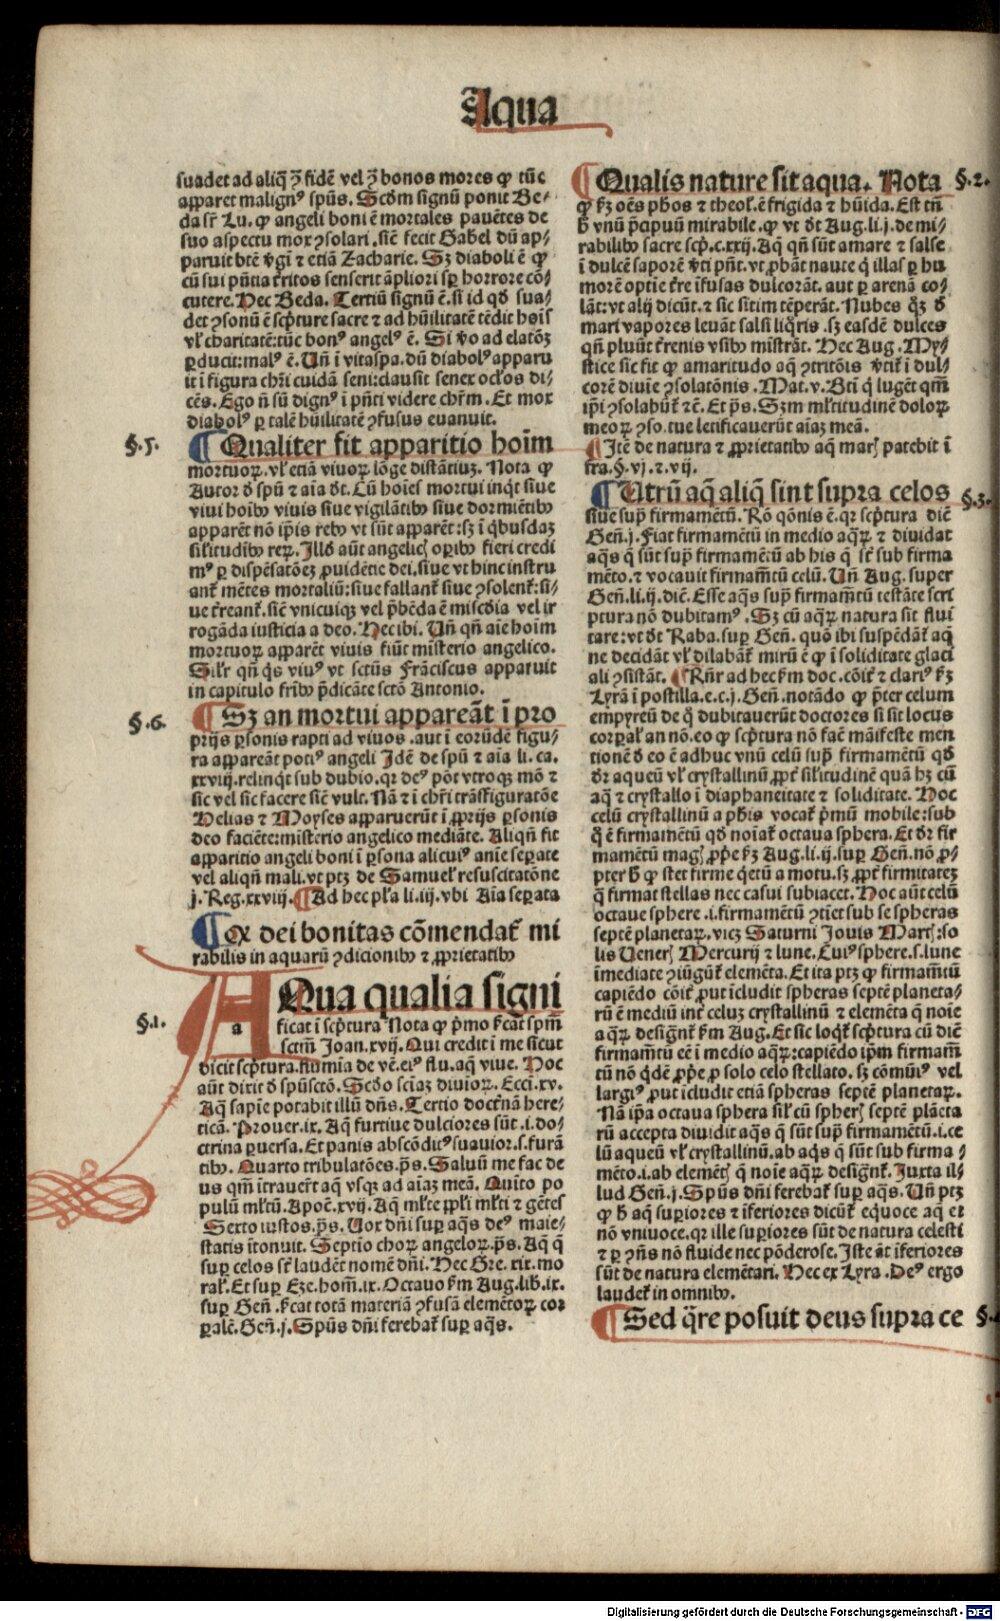 Aqua
suadet ad aliq̄ ꝯ̄ fidē vel ꝯ̄ bonos mores ꝙ tūc
apparet malignꝰ spūs. Scdm̄ signū ponit Be-
da sr̄ Lu. ꝙ angeli boni ē mortales pauētes de
suo aspectu mox ꝯsolari .sic̄ fecit Gabel dū ap-
paruit btē v̄gī ⁊ etiā Zacharie. Sꝫ diaboli ē ꝙ
cū sui pn̄tia t̄ritos senserit āpliori sꝑ horrore cō-
cutere. Hec Beda. Tertiū signū ē. si id qđ sua-
det ꝯsonū ē scp̄ture sacre ⁊ ad hūilitatē tēdit hoīs
vl̓ charitatē: tūc bonꝰ angelꝰ ē. Si v̄o ad elatōꝫ
ꝑducit: malꝰ ē. Un̄ ī vitaspa. dū diabolꝰ apparu
it ī figura chr̄i cuidā seni: clausit senex oclos̄ di-
cēs. Ego nō sū dignꝰ ī pn̄ti videre chr̄m. Et mox
diabolꝰ ꝑ talē hūilitatē ꝯfusus euanuit.
§.5. ¶ Qualiter fit apparitio hoīm
mortuoꝝ .vl̓ etiā viuoꝝ lōge distātiuꝫ. Nota ꝙ
Autor đ spū ⁊ aīa đt. Cū hoīes mortui inqt̄ siue
viui hoībꝰ viuis siue vigilātibꝰ siue dormiētibꝰ
apparēt nō ip̄is rebꝰ vt sūt apparēt: sꝫ ī qbusdaꝫ
sil̓itudībꝰ reꝝ. Illđ aūt angelicꝭ oꝑibꝰ fieri credi
mꝰ ꝑ dispēsatōeꝫ ꝓuidētie dei. siue vt hinc instru
ant̄ mētes mortaliū: siue fallant̄ siue ꝯsolent̄: si-
ue t̄reant̄. sic̄ vnicuiqꝫ vel p̄bēda ē mīscđia vel ir
rogāda iusticia a deo. Hec ibi. Un̄ qn̄ aīe hoīm
mortuoꝝ apparēt viuis fiūt mīsterio angelico.
Sil̓r qn̄ q̄s viuꝰ vt sctūs Frāciscus apparuit
in capitulo fr̄ibꝰ p̄dicāte sctō Antonio.
§.6. ¶ Sꝫ an mortui appareāt ī pro
prijs ꝑsonis rapti ad viuos .aut ī eorūdē figu-
ra appareāt potiꝰ angeli Idē de spū ⁊ aīa li. ca.
xxviij. relinqt̄ sub dubio. qr deꝰ pōt vtroqꝫ mō ⁊
sic vel sic facere sic̄ vult. Nā ⁊ ī chr̄i trāsfiguratōe
Helias ⁊ Moyses apparuerūt ī ꝓprijs ꝑsonis
deo faciēte: mīsterio angelico mediāte. Aliqn̄ fit
apparitio angeli boni ī ꝑsona alicuiꝰ anīe seꝑate
vel aliqn̄ mali. vt ptꝫ de Samuel̓ resuscitatōne
j. Reg. xxviij. ¶ Ad hec pl̓a li. iij. vbi Aīa seꝑata
¶ Ex dei bonitas cōmendat̄ mi
rabilis in aquarū ꝯdicionibꝰ ⁊ ꝓprietatibꝰ
§.1. a AQua qualia signi
ficat ī scp̄tura Nota ꝙ p̄mo s̄cat spm̄
sctm̄ Joan. xvij. Qui credit ī me sicut
dicit scp̄tura. flumīa de vē. eiꝰ flu. aq̄ viue. Hoc
aūt dixit đ spūsctō. Scđo scīaꝫ diuioꝝ. Ecci. xv.
Aq̄ sapīe potabit illū dn̄s. Tertio doctr̄nā here-
ticā. Prouer. ix. Aq̄ furtiue dulciores sūt .i. do-
ctrina ꝑuersa. Et panis abscōditꝰ suauior. s. furā
tibꝰ. Quarto tribulatōes. ps̄. Saluū me fac de
us qm̄ ītrauer̄t aq̄ vsqꝫ ad aīaꝫ meā. Quīto po
pulū ml̓tū. Apoc̄. xvij. Aq̄ ml̓te ppl̓i ml̓ti ⁊ gētes
Sexto iustos. ps̄. Uox dn̄i suꝑ aq̄s deꝰ maie-
statis ītonuit. Septīo choꝝ angeloꝝ. ps̄. Aq̄ q̄
suꝑ celos sr̄ laudēt nomē dn̄i. Hec Gre. xix. mo
ral̓. Et suꝑ Eze. hom̄. ix. Octauo s̄m Aug. lib. ix.
suꝑ Gen̄. s̄cat totā materiā ꝯfusā elemētoꝝ cor
ꝑalē. Gen̄. j. Spūs dn̄i ferebat̄ suꝑ aq̄s.
¶ Qualis nature sit aqua. Nota §.2.
ꝙ s̄ꝫ oēs phōs ⁊ theol̓. ē frigida ⁊ hūida. Est tn̄
ħ vnū p̄cipuū mirabile. ꝙ vt đt Aug. li. j. de mi-
rabilibꝰ sacre scp̄. c. xxij. Aq̄ qn̄ sūt amare ⁊ salse
ī dulcē saporē v̄ti pn̄t. vt ꝓbāt naute q̄ illas ꝑ hu
morē optie t̄re īfusas dulcorāt. aut ꝑ arenā co-
lāt: vt alij dicūt. ⁊ sic sitim tēperāt. Nubes q̄ꝫ đ
mari vapores leuāt salsi liq̄ris .sꝫ easdē dulces
qn̄ pluūt t̄renis vsibꝰ mīstrāt. Hec Aug. My-
stice sic fit ꝙ amaritudo aq̄ ꝯtritōis v̄tit̄ ī dul-
corē diuīe ꝯsolatōnis. Mat. v. Bt̄i q̄ lugēt qm̄
ip̄i ꝯsolabūt̄ ⁊c̄. Et ps̄. Sꝫm ml̓titudinē doloꝝ
meoꝝ ꝯso. tue letificauerūt aīaꝫ meā.
¶ Itē de natura ⁊ ꝓprietatibꝰ aq̄ marꝭ patebit ī
fra. §. vj. ⁊. vij.
¶ Utrū aq̄ aliq̄ sint supra celos §.3.
siue sup̄ firmamētū. Rō q̄onis ē. qr scp̄tura dic̄
Gen̄. j. Fiat firmamētū in medio aq̄ꝝ ⁊ diuidat
aq̄s q̄ sūt sup̄ firmamētū ab his q̄ sr̄ sub firma
mēto. ⁊ vocauit firmam̄tū celū. Un̄ Aug. super
Gen̄. li. ij. dic̄. Esse aq̄s sup̄ firmam̄tū testāte scri
ptura nō dubitamꝰ. Sꝫ cū aq̄ꝝ natura sit flui
tare: vt đt Raba. suꝑ Gen̄. quō ibi suspēdāt̄ aq̄
ne decidāt vl̓ dilabāt̄ mirū ē ꝙ ī soliditate glaci
ali ꝯsistāt. ¶ Rn̄r ad hec s̄m doc. cōit̄ ⁊ clariꝰ s̄ꝫ
Lyrā ī postilla. c. c. j. Gen̄. notādo ꝙ p̄ter celum
empyreū de q̄ dubitauerūt doctores si sit locus
corꝑal̓ an nō. eo ꝙ scp̄tura nō fac̄ māifeste men
tionē đ eo ē adhuc vnū celū sup̄ firmamētū qđ
đr aqueū vl̓ crystallinū ꝓpt̄ sil̓itudinē quā hꝫ cū
aq̄ ⁊ crystallo ī diaphaneitate ⁊ soliditate. Hoc
celū crystallinū a phīs vocat̄ p̄mū mobile: sub
q̄ ē firmamētū qđ noīat̄ octaua sphera. Et đr fir
mamētū magꝭ ꝓpe s̄ꝫ Aug. li. ij. suꝑ Gen̄. nō ꝓ-
pter ħ ꝙ stet firme q̄etū a motu. sꝫ ꝓpt̄ firmitateꝫ
q̄ firmat stellas nec casui subiacet. Hoc aūt celū
octaue sphere .i. firmamētū ꝯtiet̄ sub se spheras
septē planetaꝝ. vicꝫ Saturni Jouis Martꝭ: so
lis Uenerꝭ Mercurij ⁊ lune. Cuiꝰ sphere. s. lune
īmediate ꝯiūgūt̄ elemēta. Et ita ptꝫ ꝙ firmam̄tū
capiēdo cōit̄ ꝓut īcludit spheras septē planeta-
rū ē mediū int̄ celuꝫ crystallinū ⁊ elemēta q̄ noīe
aq̄ꝝ designt̄ s̄m Aug. Et sic loqt̄ scp̄tura cū dic̄
firmam̄tū eē ī medio aq̄ꝝ: capiēdo ip̄m firmam̄
tū nō q̄dē ꝓpe ꝓ solo celo stellato. sꝫ cōmūiꝰ vel
largiꝰ ꝓut īcludit etiā spheras septē planetaꝝ.
Nā ip̄a octaua sphera sil̓ cū spherꝭ septē plāeta
rū accepta diuidit aq̄s q̄ sūt sup̄ firmamētū .i. ce
lū aqueū vl̓ crystallinū. ab aq̄s q̄ sūt sub firma-
mēto .i. ab elemētꝭ q̄ noīe aq̄ꝝ designt̄. Juxta il-
lud Gen̄. j. Spūs dn̄i ferebat̄ suꝑ aq̄s. Un̄ ptꝫ
ꝙ ħ aq̄ suꝑiores ⁊ īferiores dicūt̄ eq̄uoce aq̄ et
nō vniuoce. qr ille suꝑiores sūt de natura celesti
⁊ ꝑ ꝯn̄s nō fluide nec pōderose. Iste āt īferiores
sūt de natura elemētari. Hec ex Lyra. Deꝰ ergo
laudet̄ in omnibꝰ.
¶ Sed q̄re posuit deus supra ce §.4
Digitalisierung gefördert durch die Deutsche Forschungsgemeinschaft - DFG